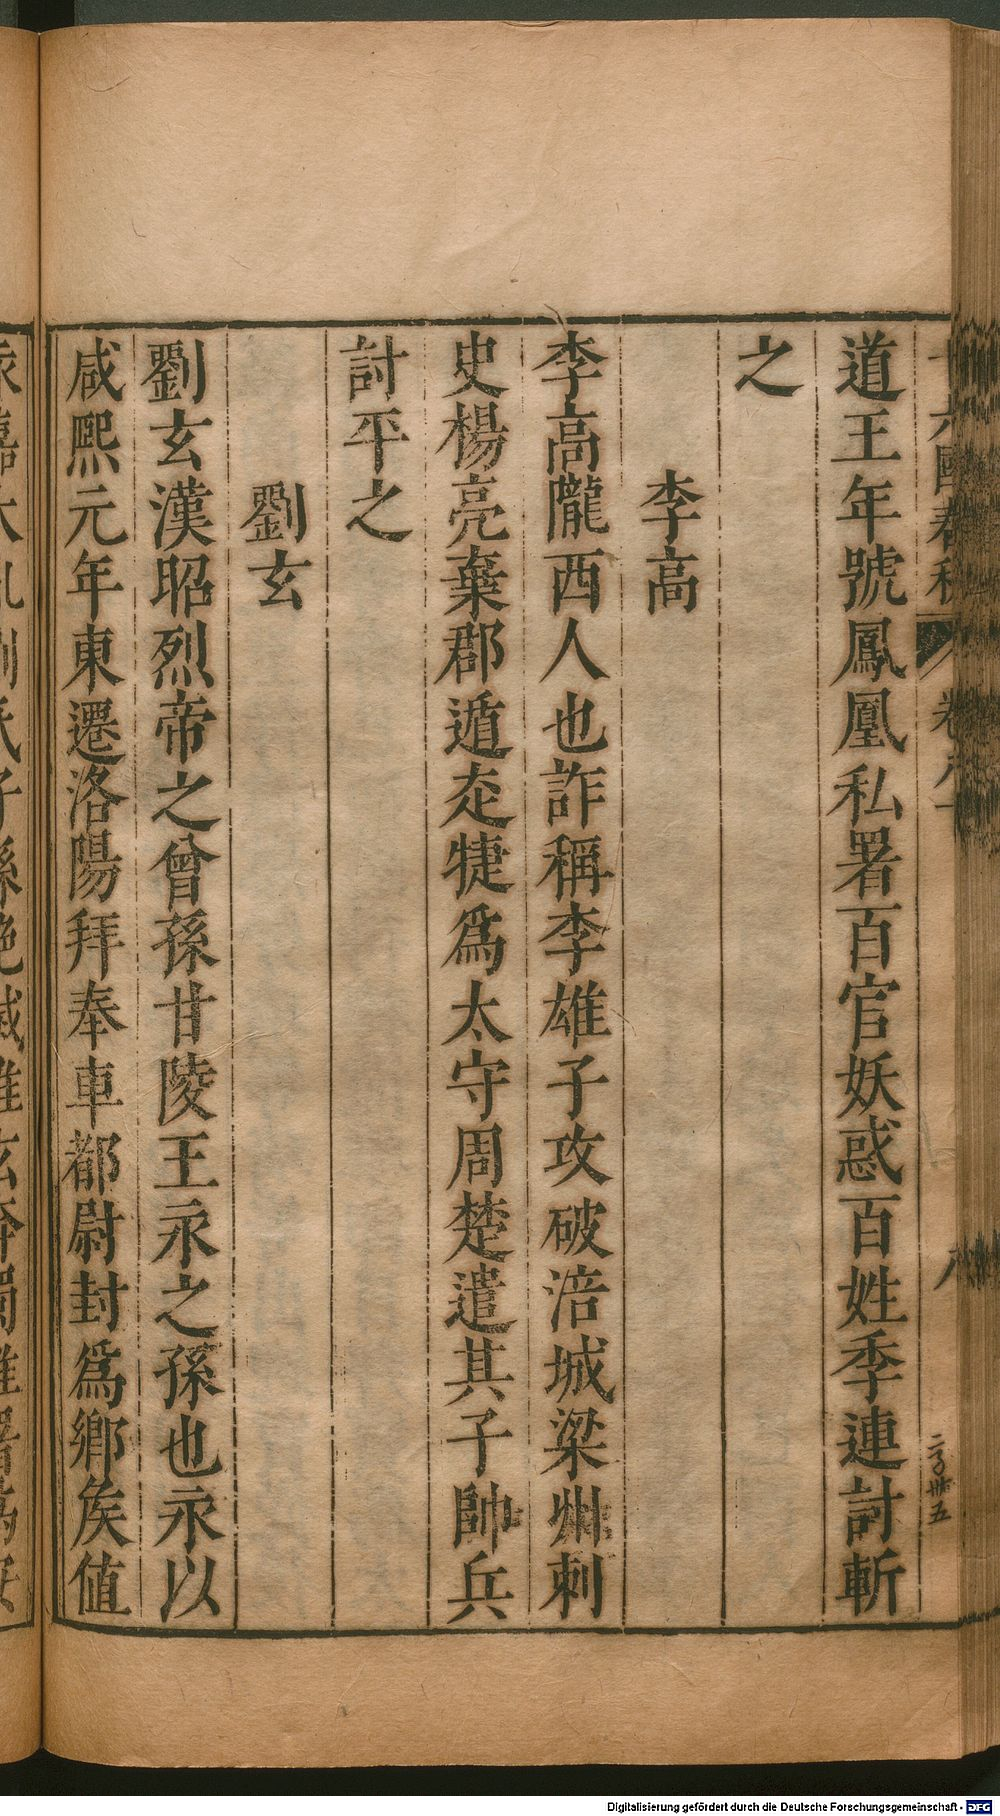 道王年號鳳凰私署百官妖惑百姓季連討斬
之
李高
李高隴西人也詐稱李雄子攻破涪城梁州刺
史楊亮棄郡遁走犍爲太守周楚遣其子帥兵
討平之
劉玄
劉玄漢昭烈帝之曾孫甘陵王永之孫也永以
咸熙元年東遷洛陽拜奉車都尉封爲鄉侯值
Digitalisierung gefördert durch die Deutsche Forschungsgemeinschaft - DFG